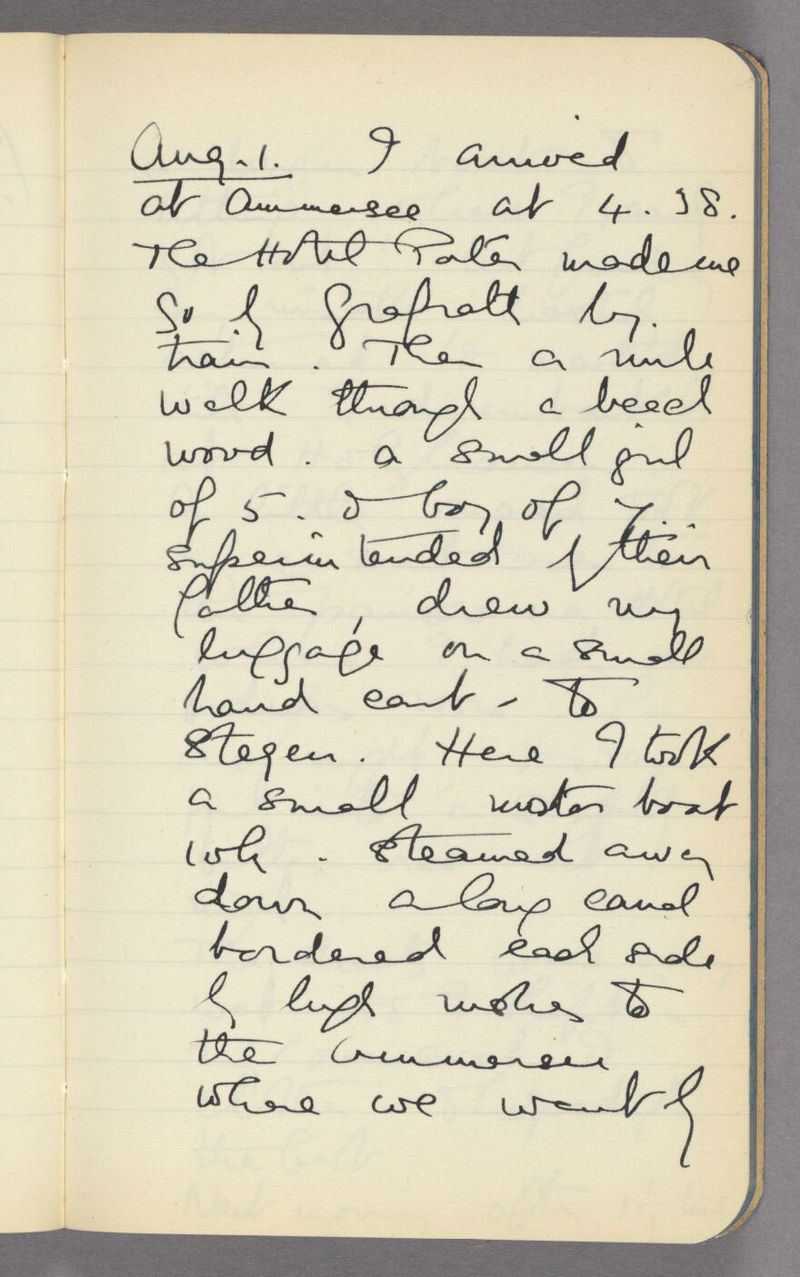 Aug. 1. I arrived
at Ammersee at 4.38.
The Hotel Porter made me
go by Grafrath by
train. Then a mile
walk through a beech
wood. a small girl
of 5. & boy of 7.
superintended by their
father, drew my
luggage on a small
hand cart - to
Stegen. Here I took
a small motor boat
which. steamed away
down a long canal
bordered each side
by high rushes to
the Ammersee
where we went by